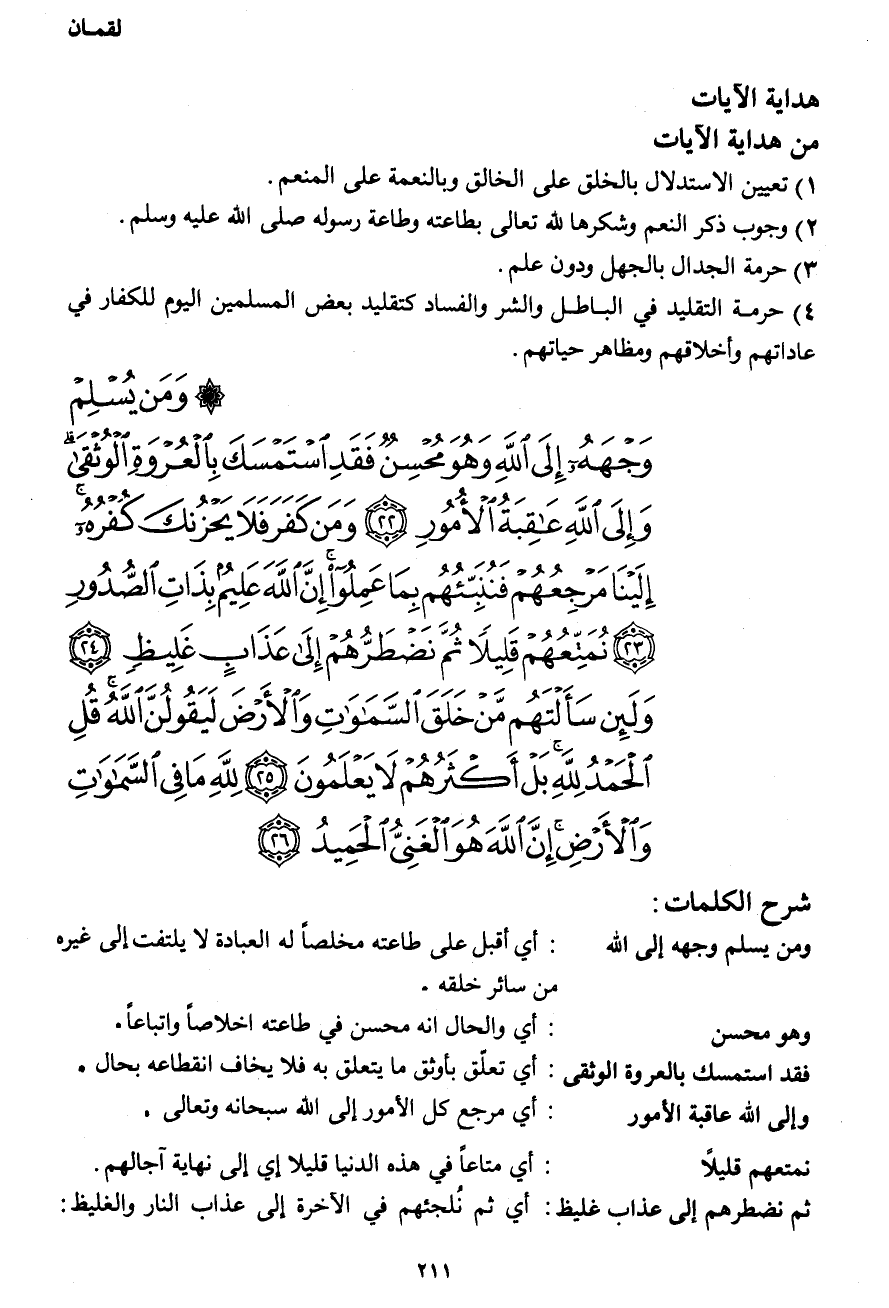 لقمــان
هداية الآيات
من هداية الآيات
١) تعيين الاستدلال بالخلق على الخالق وبالنعمة على المنعم.
٢) وجوب ذكر النعم وشكرها لله تعالى بطاعته وطاعة رسوله صلى الله عليه وسلم.
٣) حرمة الجدال بالجهل ودون علم.
٤) حرمـة التقليد في البـاطـل والشر والفساد كتقليد بعض المسلمين اليوم للكفار في
عاداتهم وأخلاقهم ومظاهر حياتهم.
۞ وَمَن يُسْلِمْ
وَجْهَهُۥٓ إِلَى ٱللَّهِ وَهُوَ مُحْسِنٌ فَقَدِ ٱسْتَمْسَكَ بِٱلْعُرْوَةِ ٱلْوُثْقَىٰۗ
وَإِلَى ٱللَّهِ عَٰقِبَةُ ٱلْأُمُورِ ٢٢ وَمَن كَفَرَ فَلَا يَحْزُنكَ كُفْرُهُۥٓۚ
إِلَيْنَا مَرْجِعُهُمْ فَنُنَبِّئُهُم بِمَا عَمِلُوٓا۟ۚ إِنَّ ٱللَّهَ عَلِيمٌۢ بِذَاتِ ٱلصُّدُورِ
٢٣ نُمَتِّعُهُمْ قَلِيلًا ثُمَّ نَضْطَرُّهُمْ إِلَىٰ عَذَابٍ غَلِيظٍ ٢٤
وَلَئِن سَأَلْتَهُم مَّنْ خَلَقَ ٱلسَّمَٰوَٰتِ وَٱلْأَرْضَ لَيَقُولُنَّ ٱللَّهُۚ قُلِ
ٱلْحَمْدُ لِلَّهِۚ بَلْ أَكْثَرُهُمْ لَا يَعْلَمُونَ ٢٥ لِلَّهِ مَا فِى ٱلسَّمَٰوَٰتِ
وَٱلْأَرْضِۚ إِنَّ ٱللَّهَ هُوَ ٱلْغَنِىُّ ٱلْحَمِيدُ ٢٦
شرح الكلمات:
ومن يسلم وجهه إلى الله : أي أقبل على طاعته مخلصاً له العبادة لا يلتفت إلى غيره
من سائر خلقه.
وهو محسن : أي والحال انه محسن في طاعته اخلاصاً واتباعاً.
فقد استمسك بالعروة الوثقى : أي تعلّق بأوثق ما يتعلق به فلا يخاف انقطاعه بحال.
وإلى الله عاقبة الأمور : أي مرجع كل الأمور إلى الله سبحانه وتعالى.
نمتعهم قليلًا : أي متاعاً في هذه الدنيا قليلا إي إلى نهاية آجالهم.
ثم نضطرهم إلى عذاب غليظ : أي ثم نُلجئهم في الآخرة إلى عذاب النار والغليظ:
٢١١